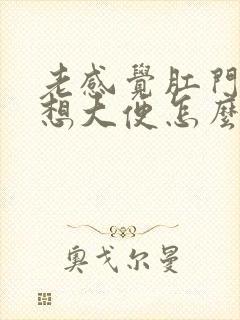 老感覺肛門
想大便怎麼
奧戈尔曼